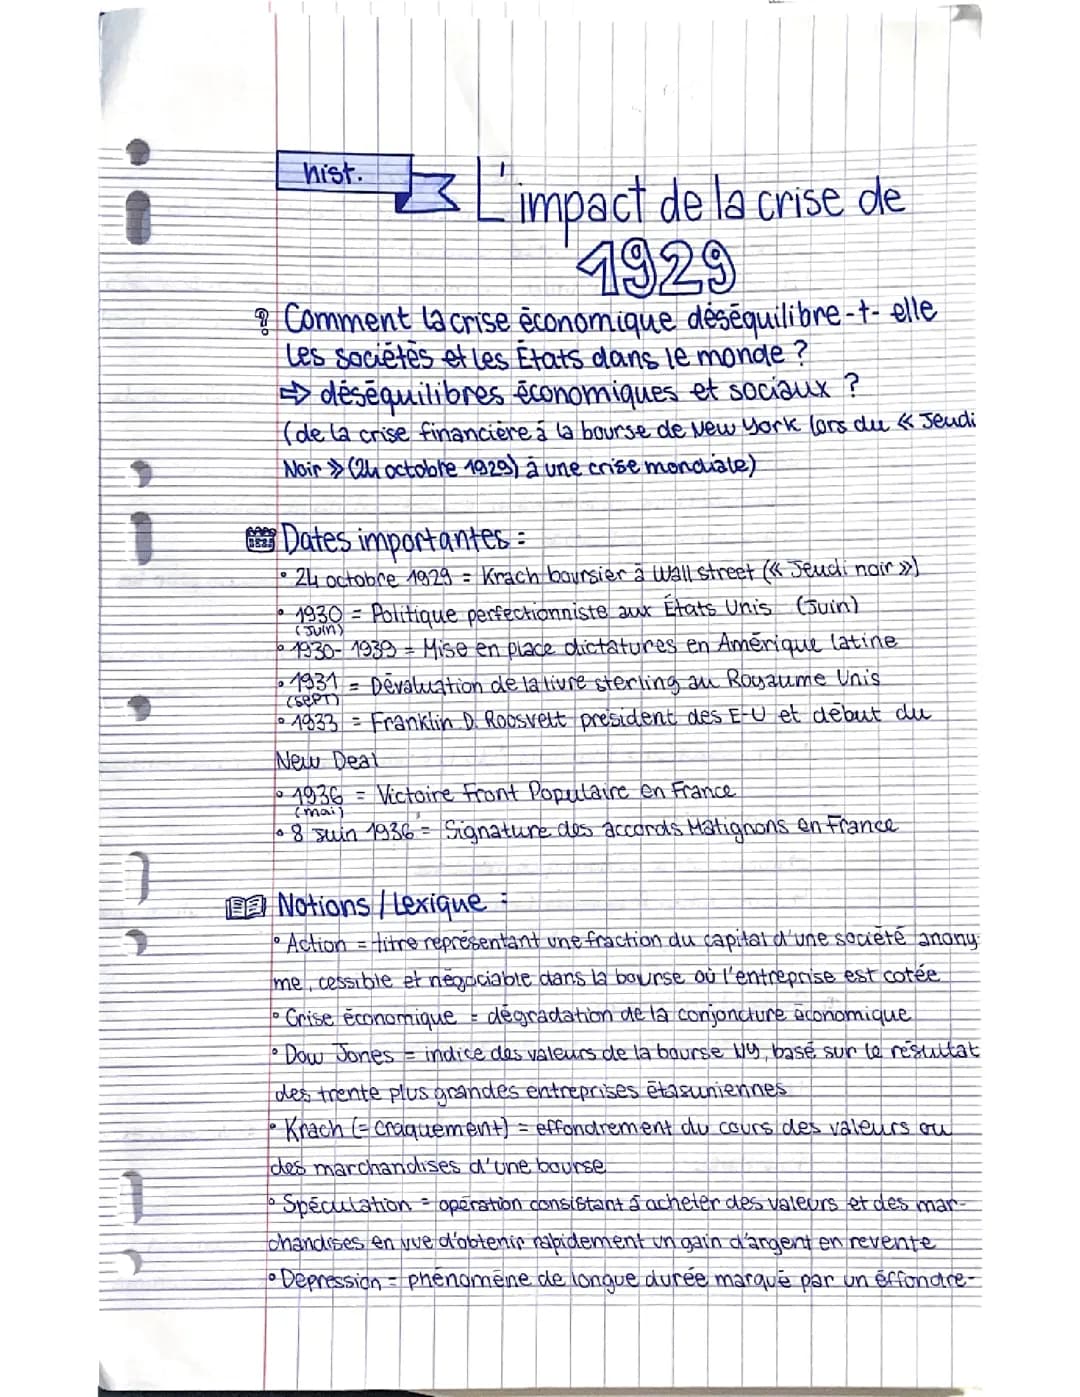 hist.
L'impact de la crise de
1929
? Comment la crise économique déséquilibre-t-elle
les sociétés et les États dans le monde ?
⇒ déséquilibres économiques et sociaux ?
(de la crise financière à la bourse de New York lors du « Jeudi
Noir » (24 octobre 1929) à une crise mondiale)
Dates importantes :
• 24 octobre 1929 = Krach boursier à Wall street (« Jeudi noir »)
• 1930 = Politique perfectionniste aux États Unis (Juin)
(Juin)
• 1930-1939 = Mise en place dictatures en Amérique latine
• 1931 = Dévaluation de la livre sterling au Royaume Unis
(sept)
• 1933 = Franklin D. Roosvelt président des E-U et début du
New Deal
• 1936 = Victoire Front Populaire en France
(mai)
• 8 Juin 1936 = Signature des accords Matignons en France
Notions / Lexique :
• Action = titre représentant une fraction du capital d'une société anony-
me, cessible et négociable dans la bourse où l'entreprise est cotée
• Crise économique = dégradation de la conjoncture économique
• Dow Jones = indice des valeurs de la bourse NY, basé sur le résultat
des trente plus grandes entreprises étasuniennes
• Krach (= craquement) = effondrement du cours des valeurs ou
des marchandises d'une bourse
• Spéculation = opération consistant à acheter des valeurs et des mar-
chandises en vue d'obtenir rapidement un gain d'argent en revente
• Dépression = phénomène de longue durée marqué par un éffondre-